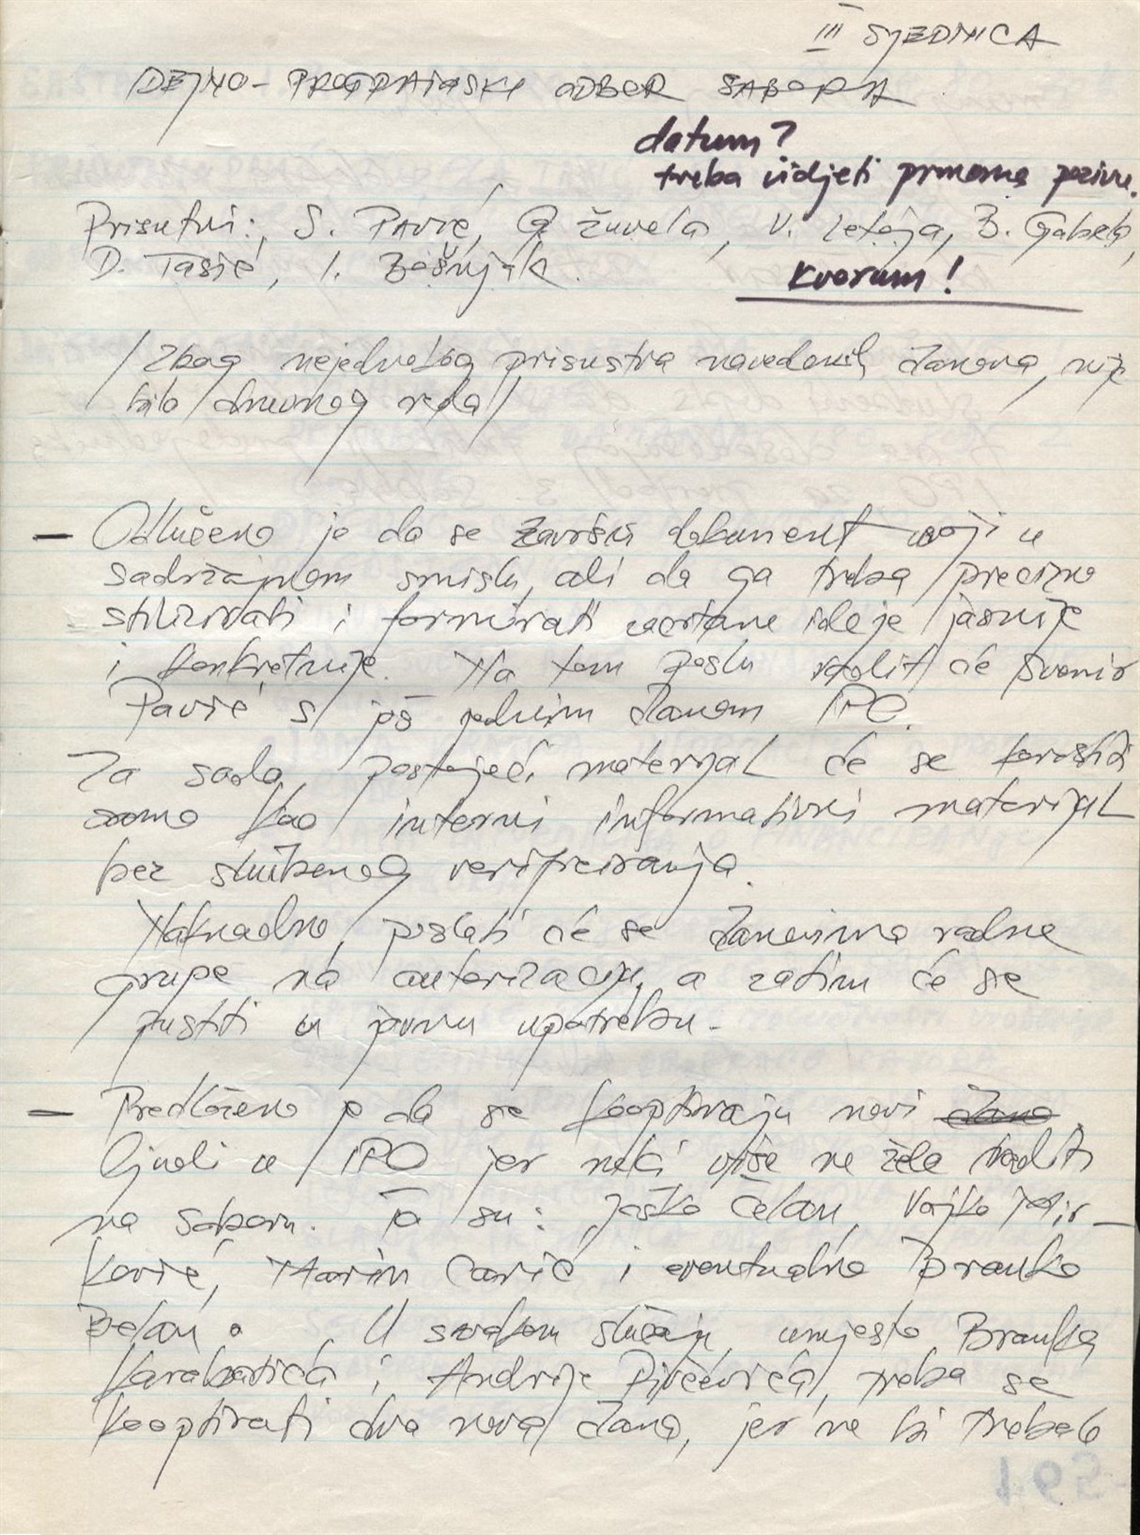 III SJEDNICA
IDEJNO-PROGRAMSKI ODBOR SABORA
datum?
treba vidjeti prema pozivu.
Prisutni:, S. Pavić, G Žuvela, V. B. Gabelo,
D. Tasić, I. Bošnjak.
kvorum!
/Zbog nejednakog prisustva navedenih članova, nije
bilo dnevnog reda/
— Odlučeno je da se završni dokument usvoji u
sadržajnom smislu, ali da ga treba precizno
stilizirati i formirati ucrtane ideje jasnije
i konkretnije. Na tom poslu radit će Svemir
Pavić s još jednim članom IPO.
Za sada, postojeći materijal će se koristiti
samo kao interni informativni materijal
bez službenog verificiranja.
Naknadno, poslati će se članovima radne
grupe na autorizaciju, a zatim će se
pustiti u punu upotrebu-
— Predloženo je da se kooptiraju novi
ljudi u IPO jer neki više ne žele raditi
na saboru. To su: Joško Čelan, Vojko Mir-
ković, Marin Carić i eventualno Branko
Belan. U svakom slučaju, umjesto Branka
Karabatića i Andrije treba se
kooptirati dva nova člana, jer ne bi trebalo
591